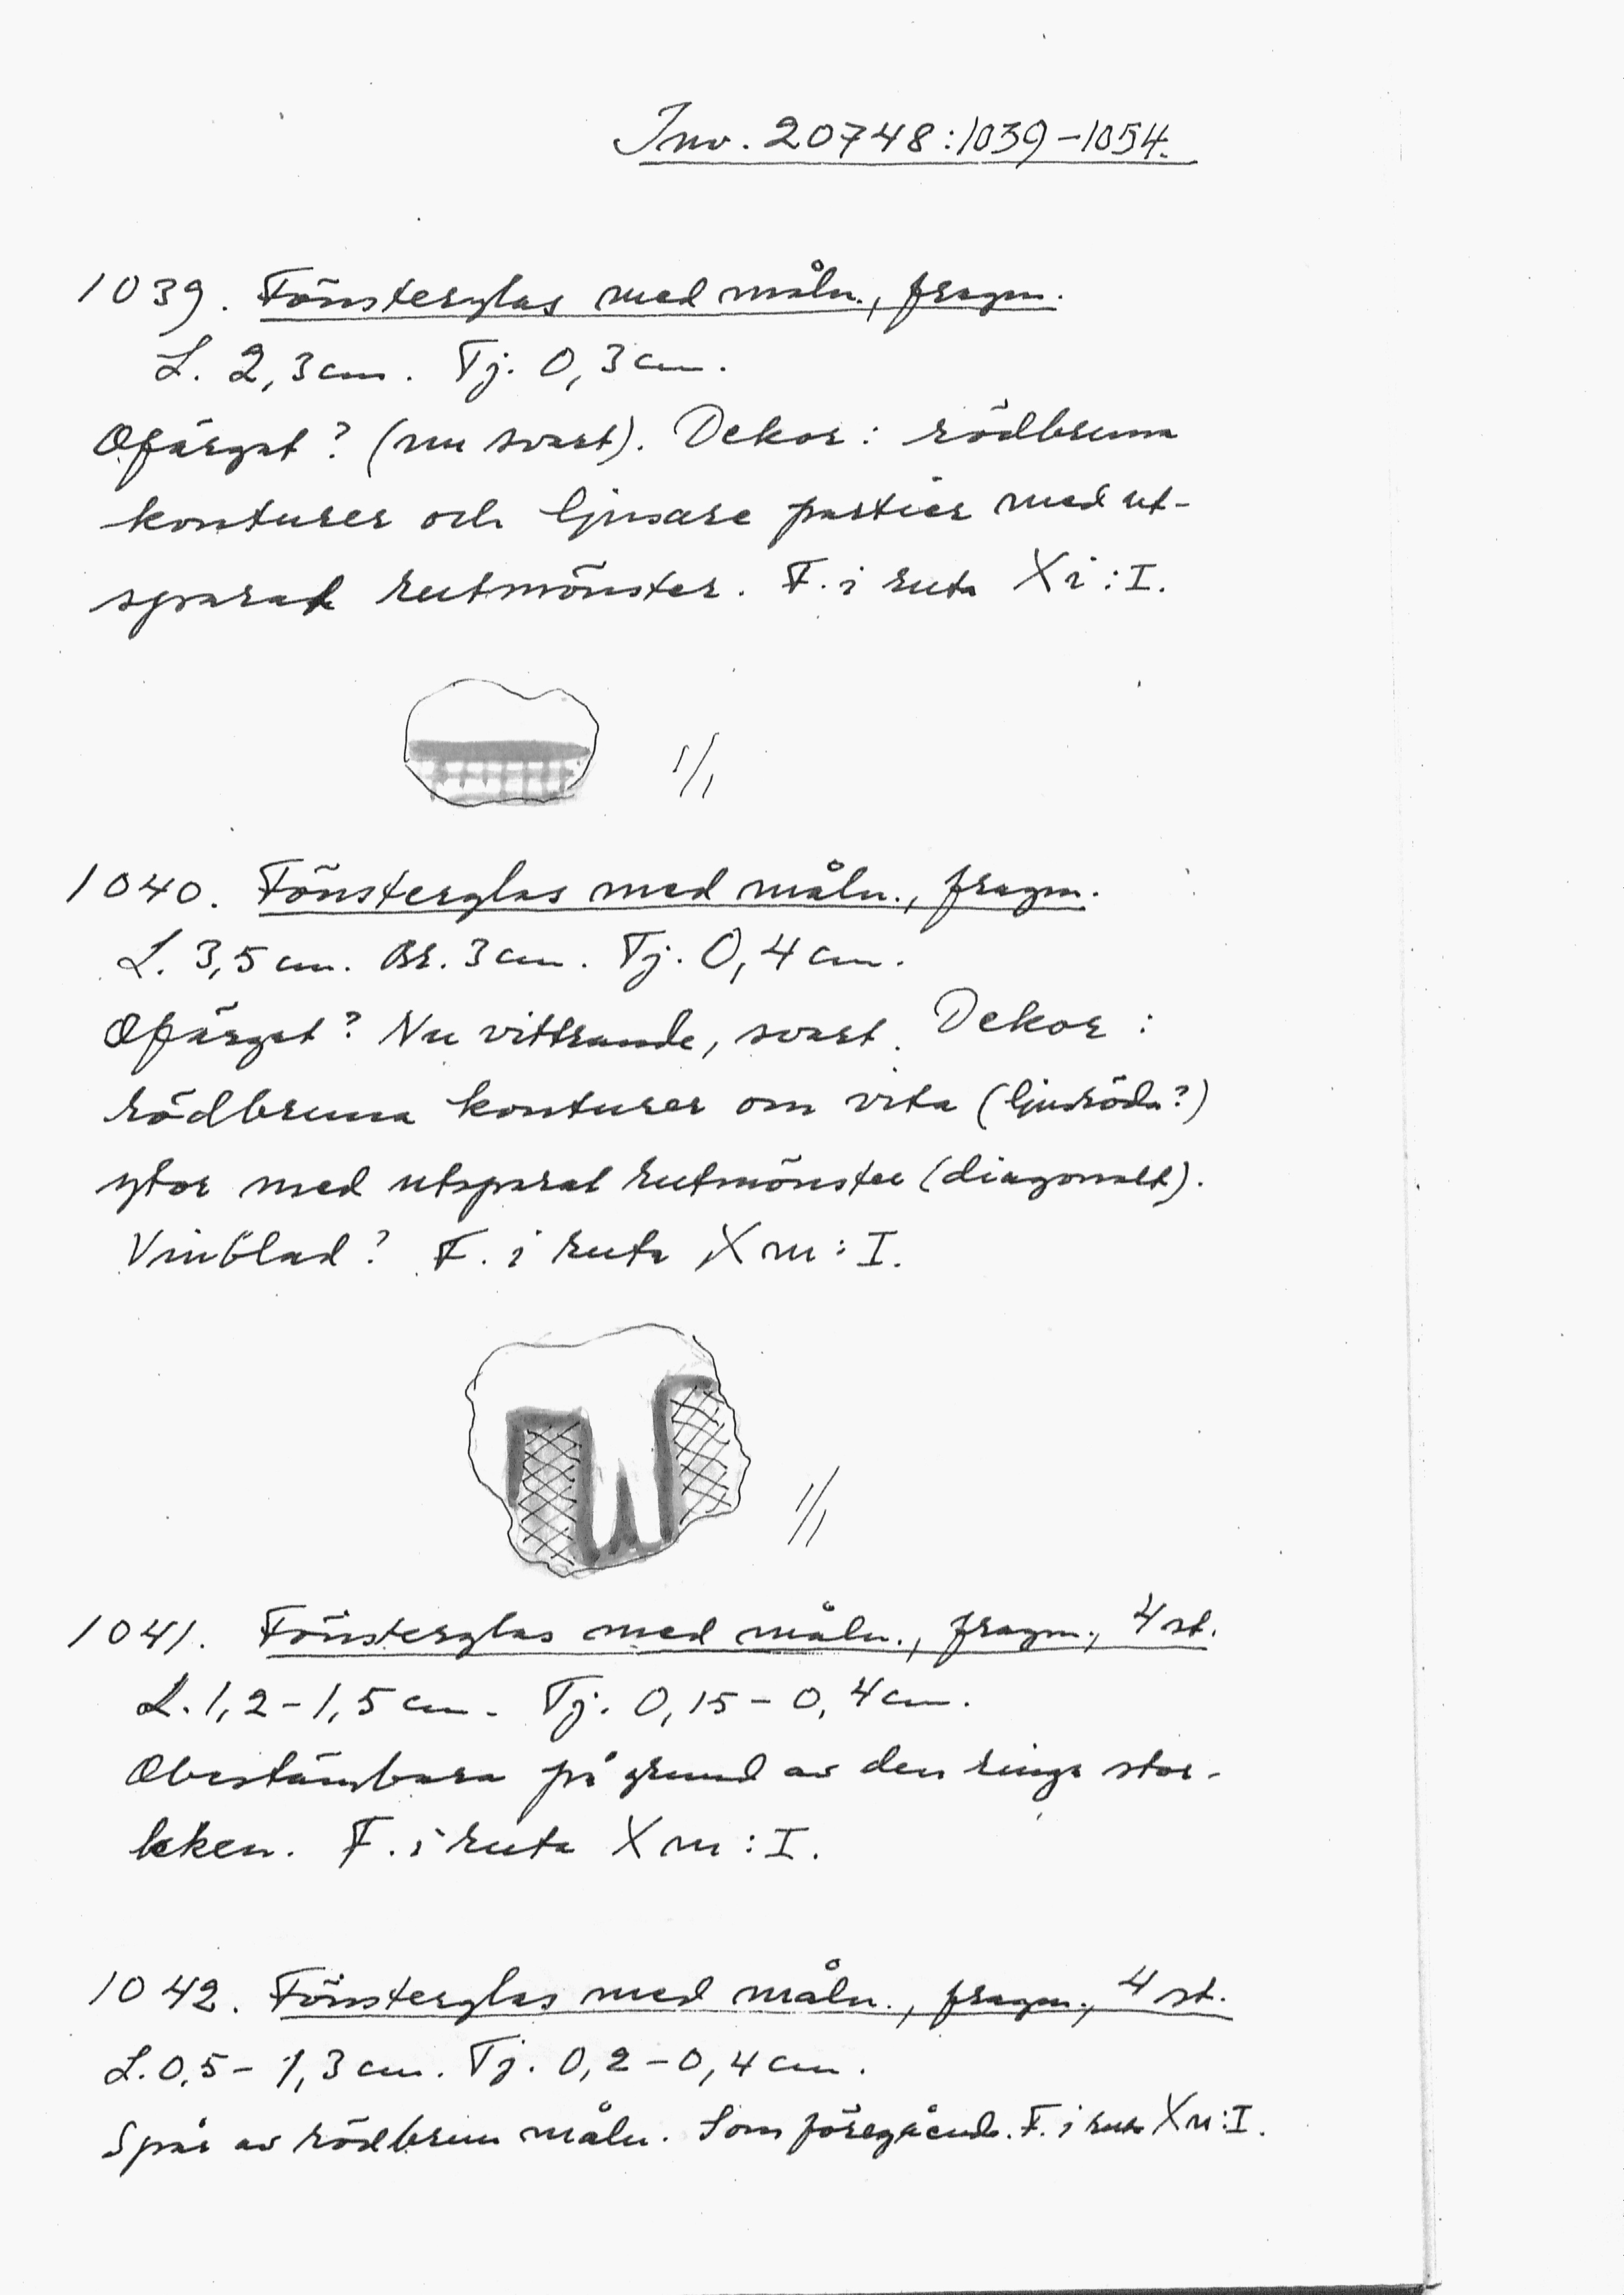 Inv. 20748:1039-1054.
1039. Fönsterglas med måln., fragm.
L. 2,3 cm. Tj. 0,3 cm.
Ofärgat? (nu svart). Dekor: rödbruna
konturer och ljusare partier med ut-
sparat rutmönster. F. i ruta Xi:I.
1/1
1040. Fönsterglas med måln., fragm.
L. 3,5 cm. Br. 3 cm. Tj. 0,4 cm.
Ofärgat? Nu vittrande, svart. Dekor:
rödbruna konturer om vita (ljusröda?)
ytor med utsparat rutmönster (diagonalt).
Vinblad? F. i ruta Xm:I.
1/1
1041. Fönsterglas med måln., fragm., 4 st.
L. 1,2-1,5 cm. Tj. 0,15-0,4 cm.
Obestämbara på grund av den ringa stor-
leken. F. i ruta Xm:I.
1042. Fönsterglas med måln., fragm., 4 st.
L. 0,5-1,3 cm. Tj. 0,2-0,4 cm.
Spår av rödbrun måln. Som föregående. F. i ruta :I.